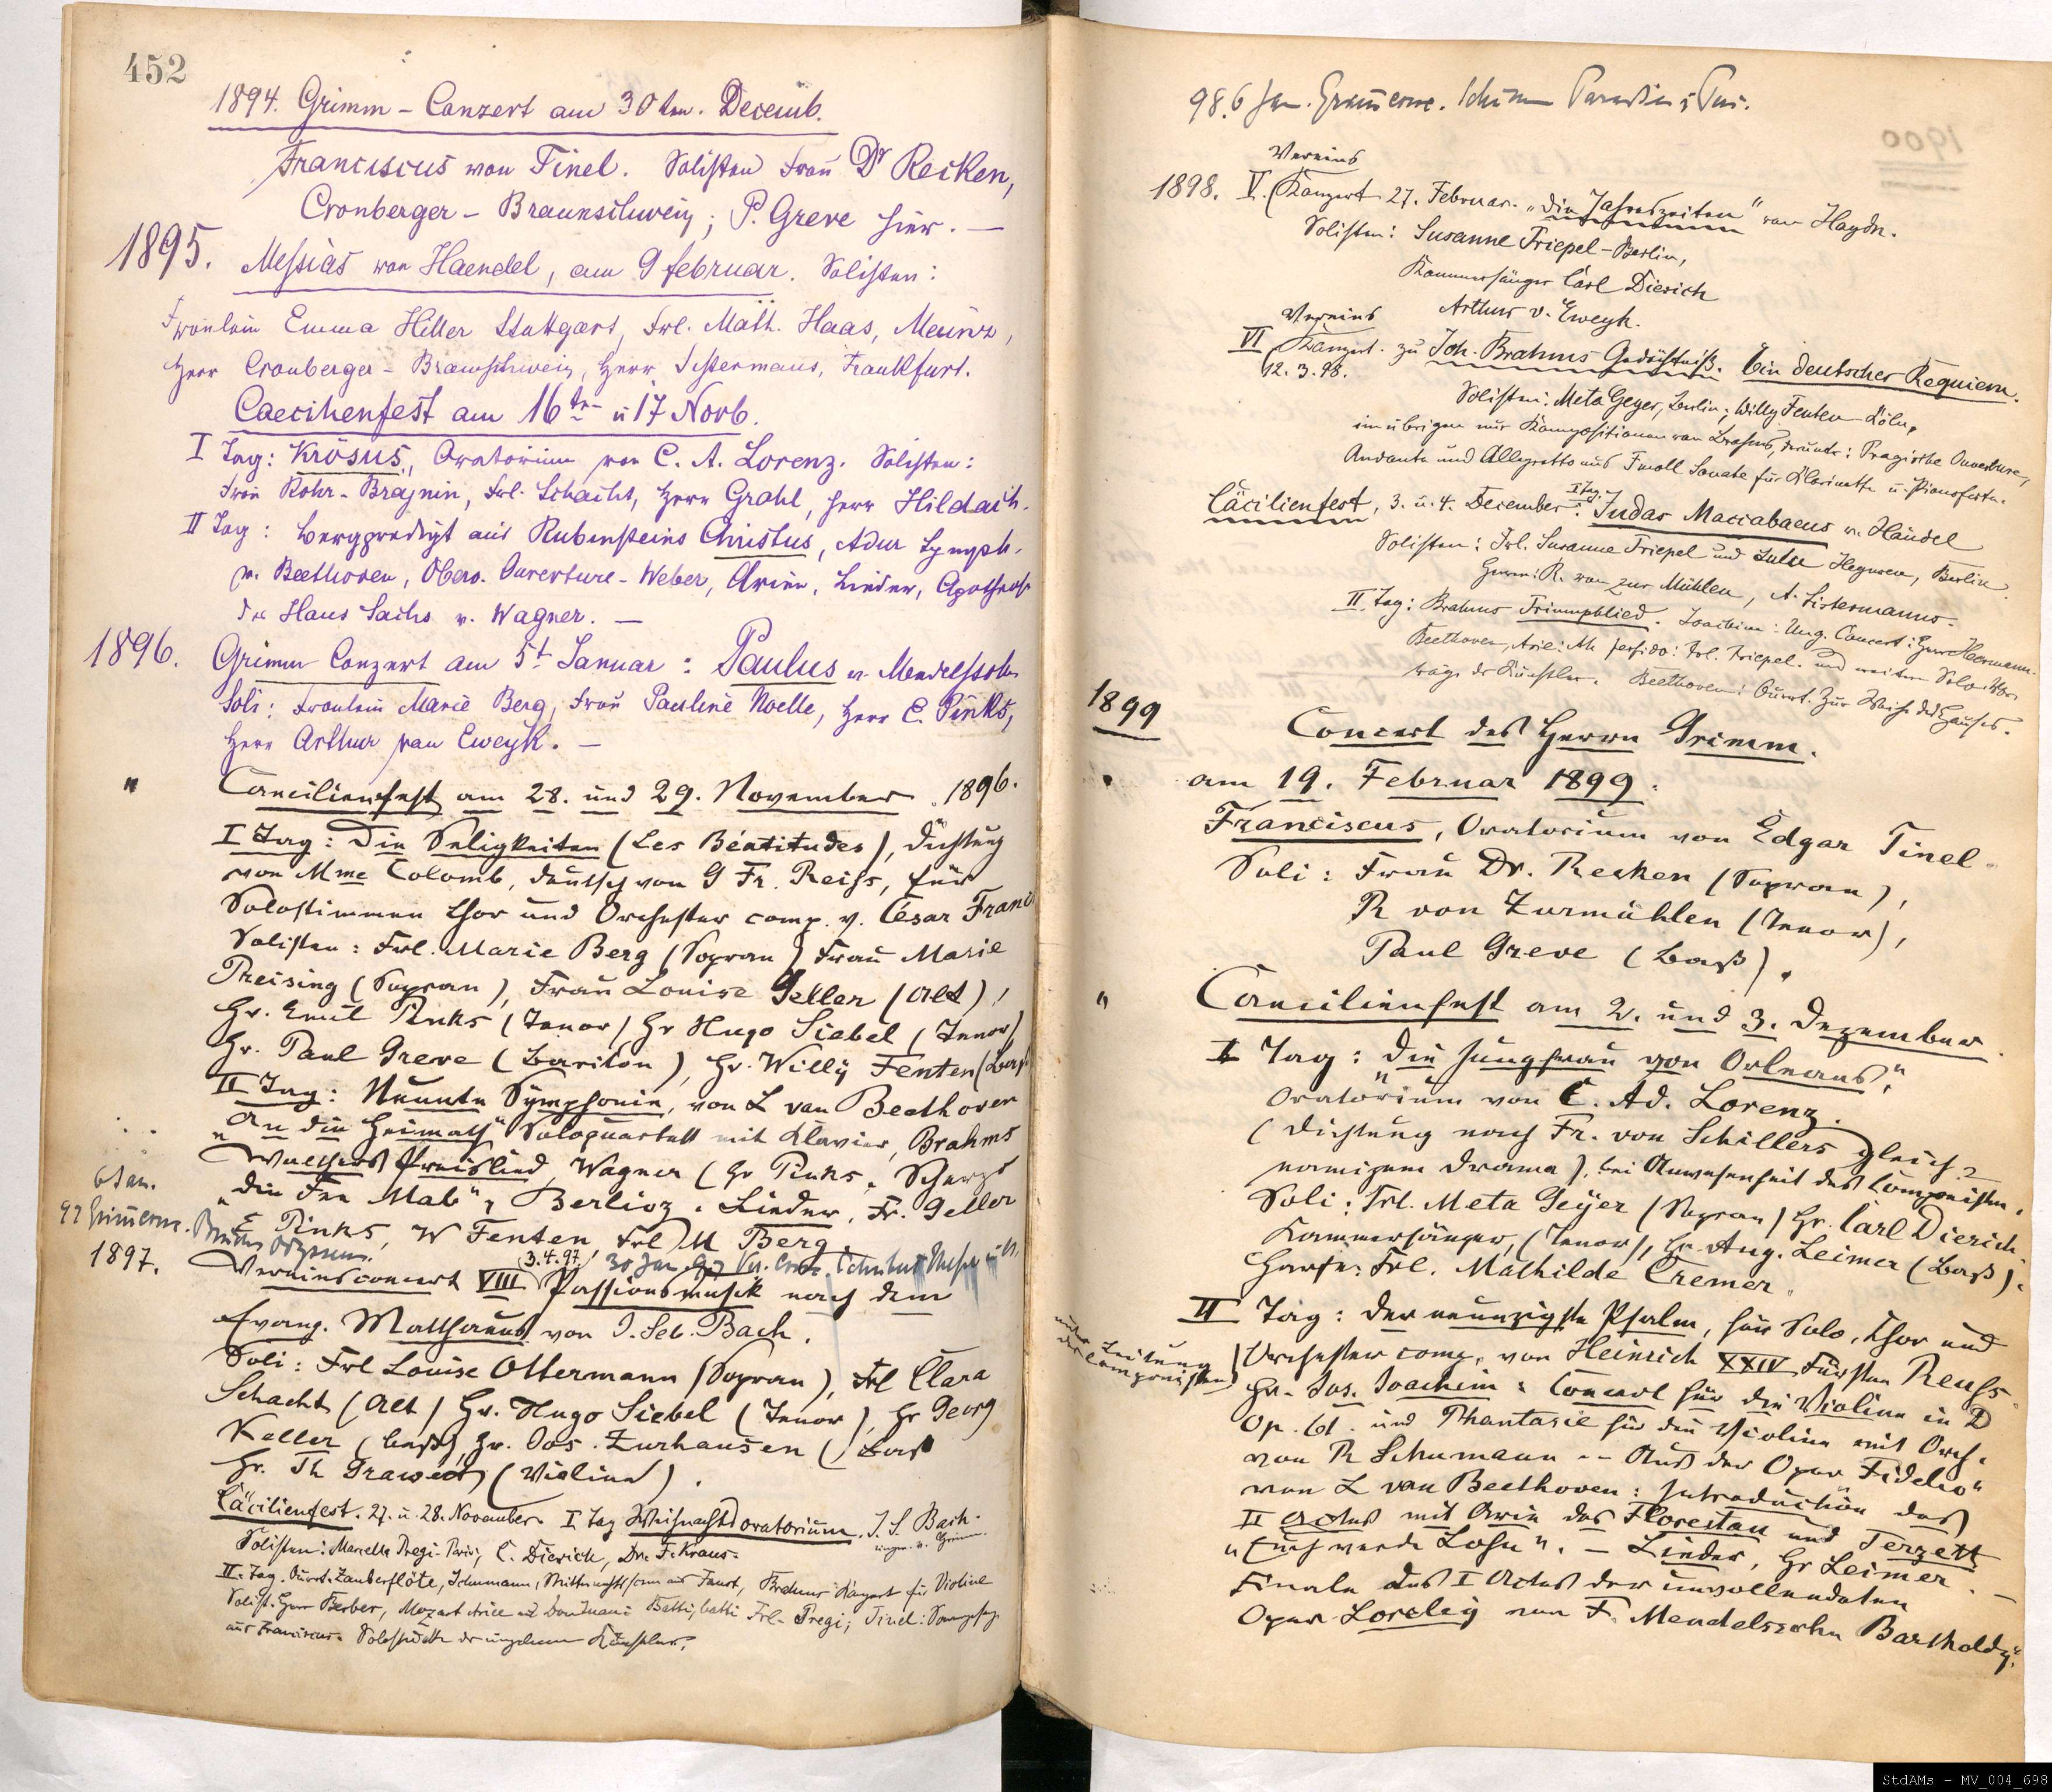 452
1894. Grimm - Conzert am 30ten. Decemb.
Franciscus von Tinel. Solisten Frau Dr Recken,
Cronberger - Braunschweig; P. Greve hier. —
1895. Messias von Haendel, am 9 februar. Solisten:
Fräulein Emma Hiller Stuttgart, Frl. Math. Haas, Mainz,
Herr Cronberger - Braunschweig, Herr Sistermans, Frankfurt.
Caecilienfest am 16ten u 17 Novb.
I Tag: Krösus, Oratorium von C. A. Lorenz. Solisten:
Frau Rohr-Brajnin, Frl. Schacht, Herr Grahl, Herr Hildach.
II Tag: Bergpredigt aus Rubinsteins Christus, Adur Symph.
v. Beethoven, Obero. Ouverture - Weber, Arien, Lieder, Apotheose
des Hans Sachs v. Wagner. —
1896. Grimm Conzert am 5t Januar: Paulus v. Mendelssohn
Soli: Fräulein Marie Berg, Frau Pauline Noelle, Herr E. Pinks,
Herr Arthur van Eweyk. —
" Caecilienfest am 28. und 29. November. 1896.
I Tag: Die Seligkeiten (Les Béatitudes), Dichtung
von Mme Colomb, deutsch von G Fr. Reiss, für
Solostimmen Chor und Orchester comp. v. César Franck
Solisten: Frl. Marie Berg (Sopran) Frau Marie
Preising (Sopran), Frau Louise Geller (Alt),
Hr. Emil Pinks (Tenor) Hr Hugo Siebel (Tenor)
Hr. Paul Greve (Bariton), Hr. Willy Fenten (Bass)
II Tag: Neunte Symphonie, von L van Beethoven
"An die Heimath" Soloquartett mit Klavier, Brahms
Walthers Preislied, Wagner (Hr Pinks. Scherzo
"Die Fee Mab", Berlioz. Lieder, Fr. Geller
E Pinks, W Fenten, Frl M Berg.
6 Jan.
97 Grimmconc. Bruchs Odysseus.
30 Jan 97 Ver. Conc. Schubert Messe
1897. Vereinsconcert VIII 3.4.97 Passionsmusik nach dem
Evang. Matthaeus von J. Seb. Bach.
Soli: Frl Louise Ottermann (Sopran), Frl Clara
Schacht (Alt) Hr. Hugo Siebel (Tenor), Hr Georg
Keller (Bass), Hr. Jos. Zurhausen (Bass
Hr. Th Grawert (Violine).
Cäcilienfest. 27. u. 28. November. I Tag Weihnachtsoratorium. J. S. Bach.
Solisten: Marcella Pregi-Paris, C. Dierich, Dr. F. Kraus.
II. Tag. Ouvert. Zauberflöte, Schumann, aus Faust, Brahms Konzert für Violine
Solist. Herr Berber, Mozart Arie aus Don Juan: Batti, batti Frl. Pregi; Tinel: Sonnengesang
aus Franciscus. Solostücke der einzelnen Künstler.
98. 6 Jan. Grimmconc. Schumann Paradies u Peri.
1898. V. Vereins Konzert 27. Februar. "Die Jahreszeiten" von Haydn.
Solisten: Susanne Triepel-Berlin,
Kammersänger Carl Dierich
Arthur v. Eweyk.
VI Vereins Konzert. zu Joh. Brahms Gedächtniß. Ein deutsches Requiem.
12.3.98.
Solisten: Meta Geyer, Berlin; Willy Fenten Köln,
im übrigen nur Kompositionen von Brahms, darunter: Tragische Ouverture,
Andante und Allegretto aus Fmoll Sonate für Klarinette u. Pianoforte.
Cäcilienfest, 3. u. 4. December: I Tag. Judas Maccabaeus v. Händel
Solisten: Frl. Susanne Triepel und Luise Heymann, Berlin
Herren: R. von zur Mühlen, A. Sistermanns.
II. Tag: Brahms Triumphlied. Joachim: Ung. Concert: Herr Heermann.
Beethoven, Arie: Ah perfido: Frl. Triepel. und weitere Solovor-
träge der Künstler. Beethoven: Ouvert. Zur Weihe des Hauses.
1899
Concert des Herrn Grimm.
am 19. Februar 1899.
Franciscus, Oratorium von Edgar Tinel
Soli: Frau Dr. Recken (Sopran),
R von Zurmühlen (Tenor),
Paul Greve (Baß).
" Caecilienfest am 2. und 3. Dezember.
I Tag: "Die Jungfrau von Orleans",
Oratorium von C. Ad. Lorenz.
(Dichtung nach Fr. von Schillers gleich-
namigem Drama), bei Anwesenheit des Componisten.
Soli: Frl. Meta Geyer (Sopran) Hr. Carl Dierich
Kammersänger, (Tenor), Hr. Aug. Leimer (Baß).
Harfe: Frl. Mathilde Cremer.
II Tag: Der neunzigste Psalm, für Solo, Chor und
Orchester comp. von Heinrich XXIV Fürsten Reuss
unter Leitung
des Componisten
Hr. Jos. Joachim: Concert für die Violine in D
Op. 61. und Phantasie für die Violine mit Orch.
von R Schumann -- Aus der Oper Fidelio"
von L van Beethoven: Introduction des
II Actes mit Arie des Florestan und Terzett
"Euch werde Lohn". - Lieder, Hr Leimer. -
Finale des I Actes der unvollendeten
Oper Loreley von F. Mendelssohn Bartholdy.
1900
StdAMs - MV_004_698